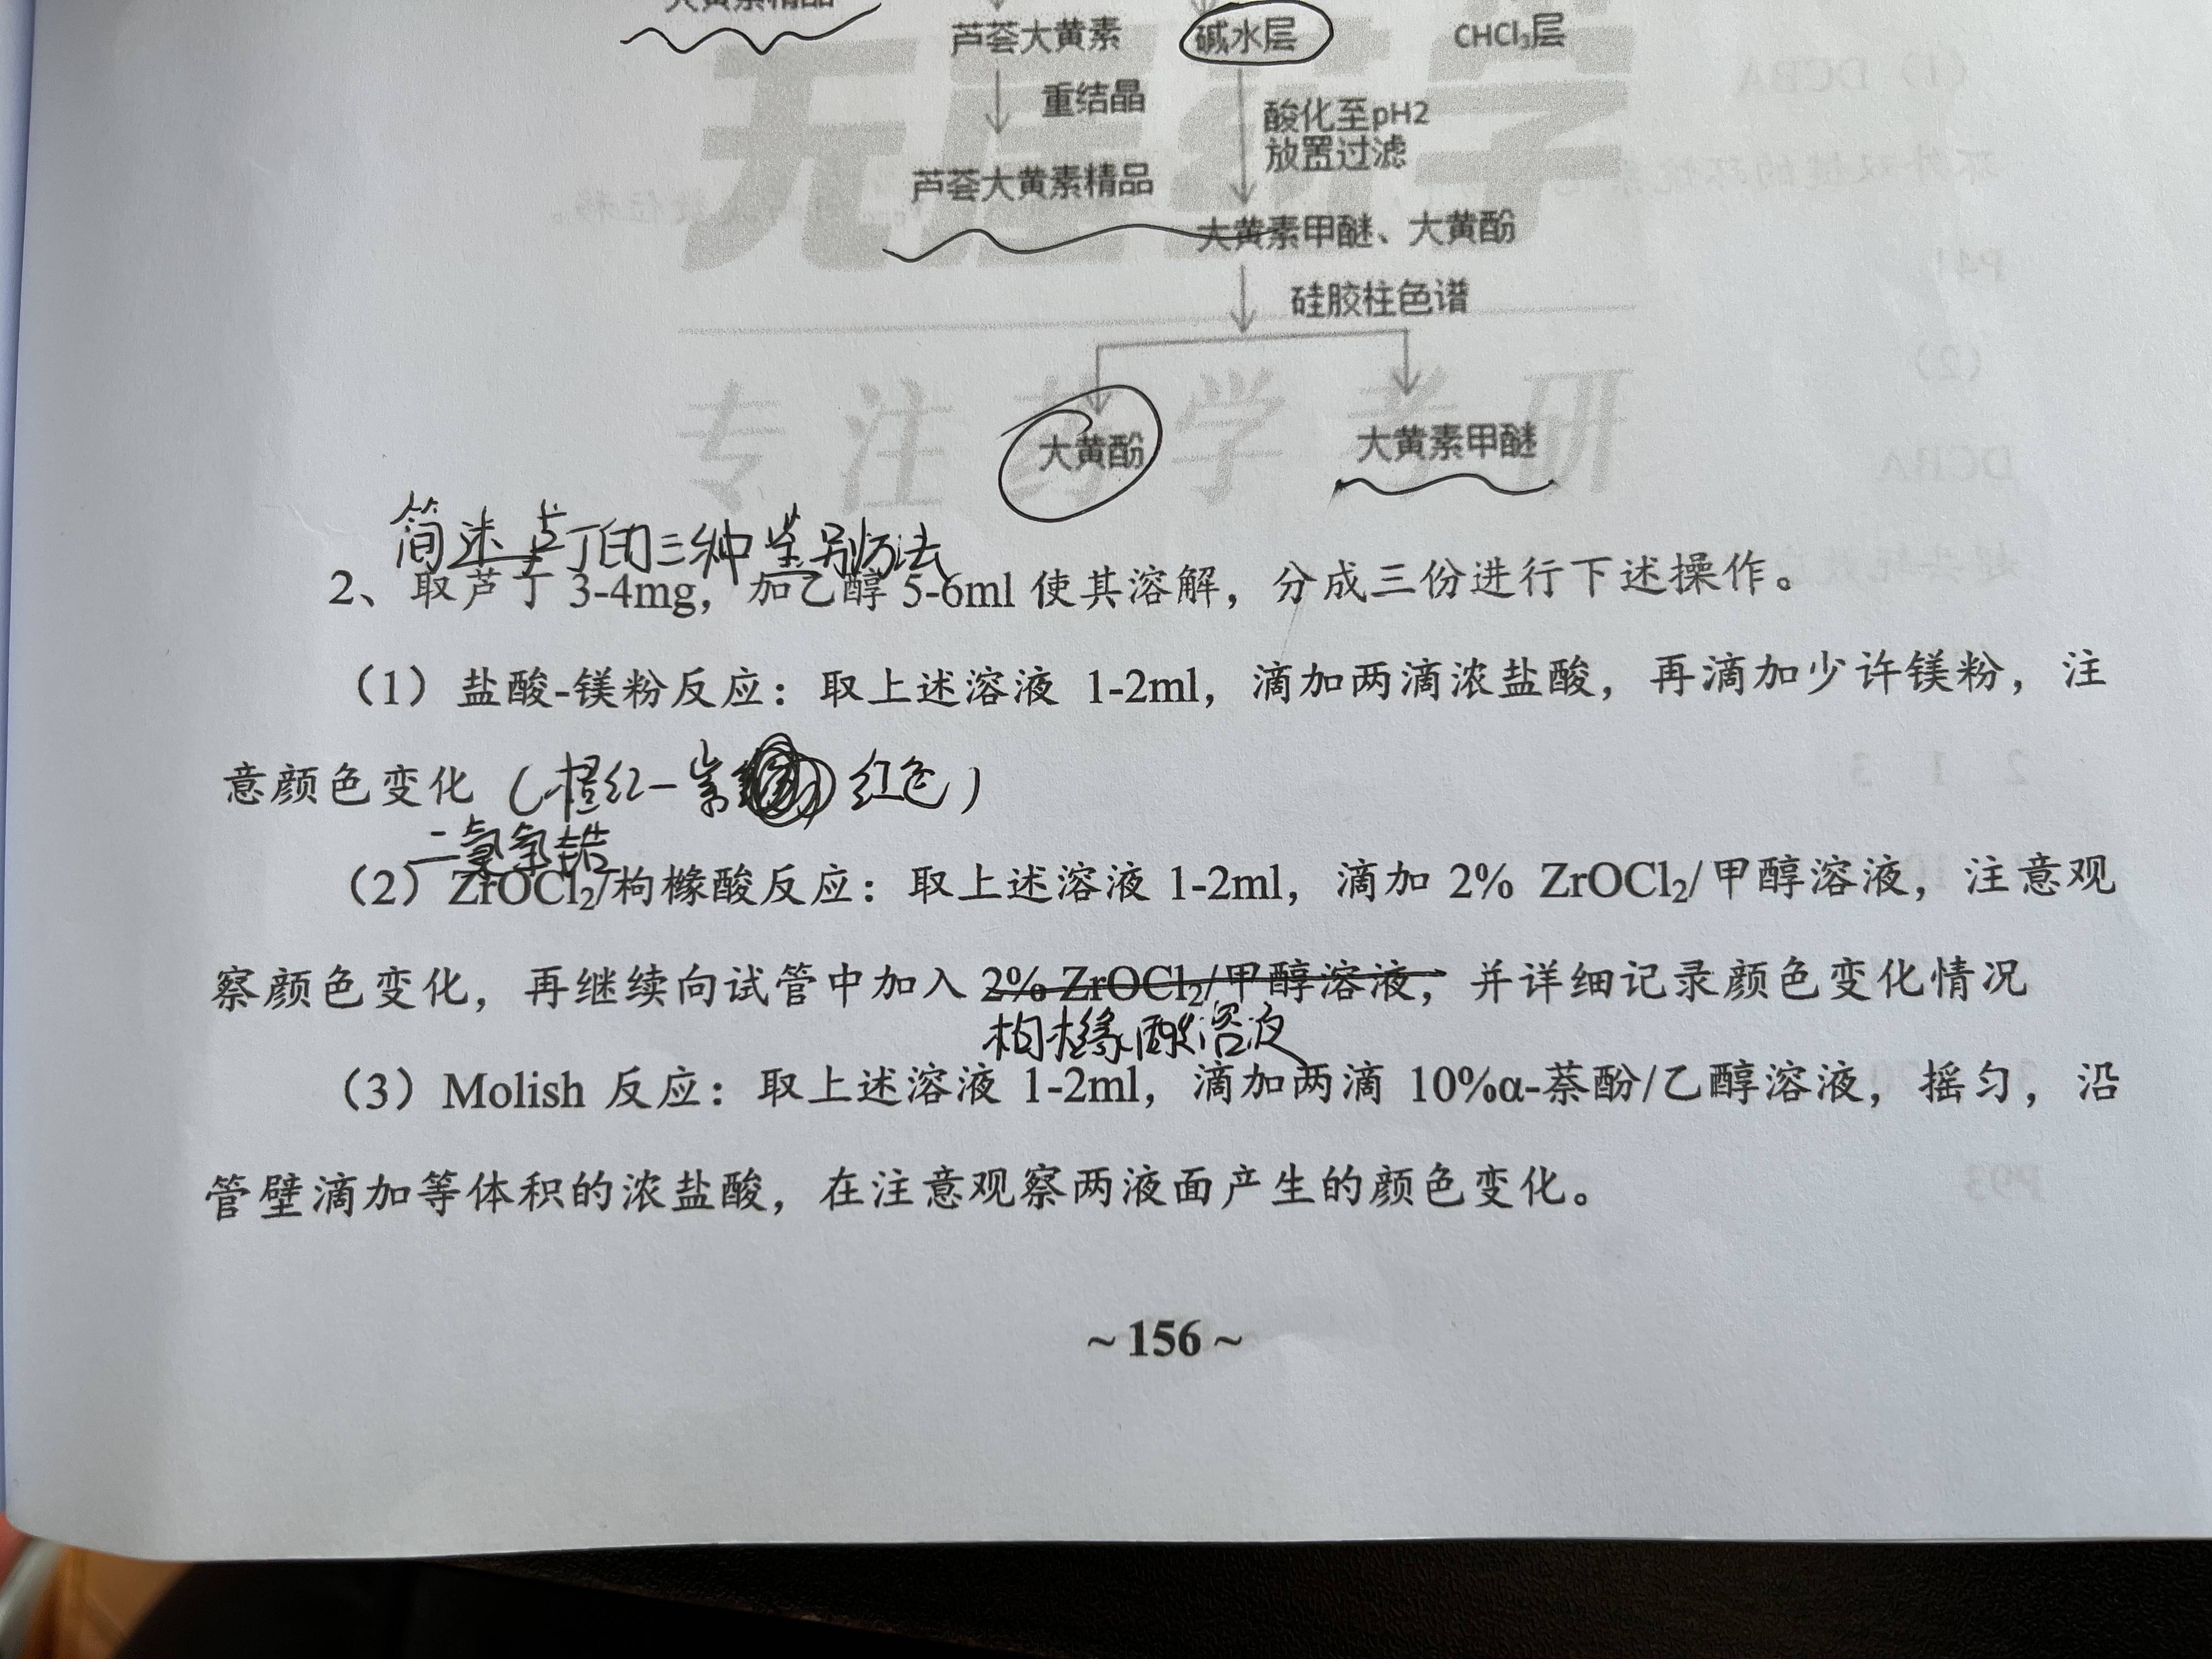 大黄素精品
芦荟大黄素 碱水层 CHCl₃层
重结晶 酸化至pH2
放置过滤
芦荟大黄素精品
大黄素甲醚、大黄酚
硅胶柱色谱
专注药学考研
大黄酚 大黄素甲醚
简述芦丁的三种鉴别方法
2、取芦丁 3-4mg，加乙醇 5-6ml 使其溶解，分成三份进行下述操作。
（1）盐酸-镁粉反应：取上述溶液 1-2ml，滴加两滴浓盐酸，再滴加少许镁粉，注
意颜色变化（橙红-紫红色）
二氯氧锆
（2）ZrOCl₂/枸橼酸反应：取上述溶液 1-2ml，滴加 2% ZrOCl₂/甲醇溶液，注意观
察颜色变化，再继续向试管中加入 2% ZrOCl₂/甲醇溶液，并详细记录颜色变化情况
枸橼酸溶液
（3）Molish 反应：取上述溶液 1-2ml，滴加两滴 10%α-萘酚/乙醇溶液，摇匀，沿
管壁滴加等体积的浓盐酸，在注意观察两液面产生的颜色变化。
~ 156 ~